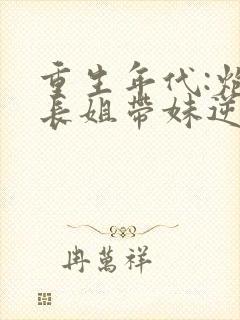 重生年代:炮
長姐帶妹逆
冉萬祥